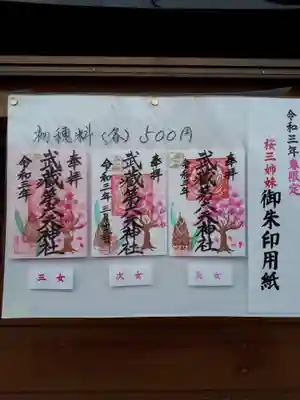 初穂料(各)500円
令和三年春限定
桜三姉妹
御朱印用紙
奉拝
武蔵第六天神社
令和三年
三女
奉拝
武蔵第六天神社
令和三年
次女
奉拝
武蔵第六天神社
令和三年
長女